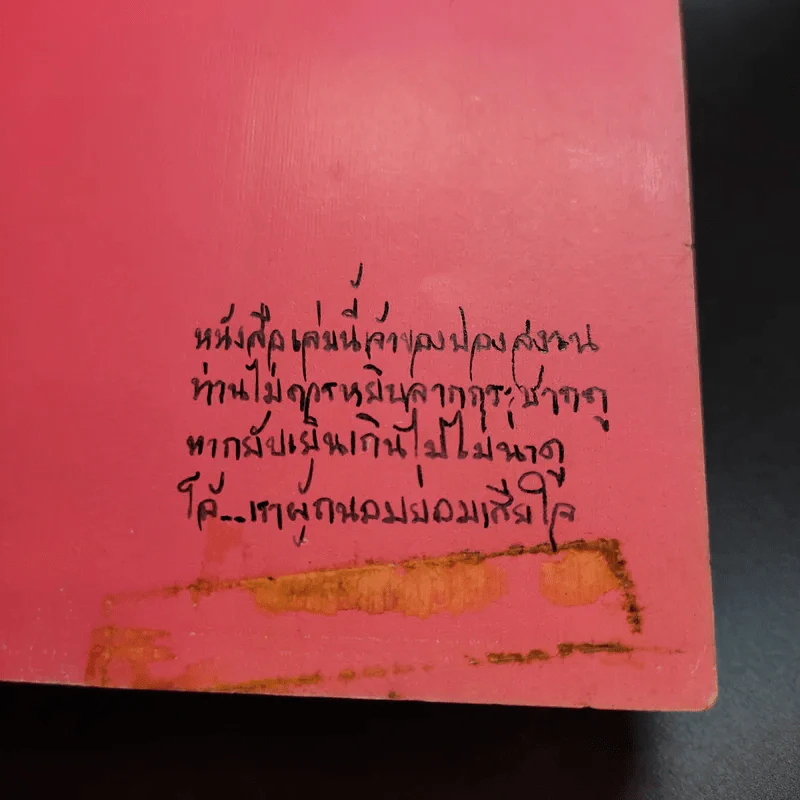 หนังสือเล่มนี้เจ้าของปองสงวน
ท่านไม่ควรหยิบลากกระชากดู
หากยับเยินเกินไปไม่น่าดู
โอ้..เราผู้ถนอมย่อมเสียใจ